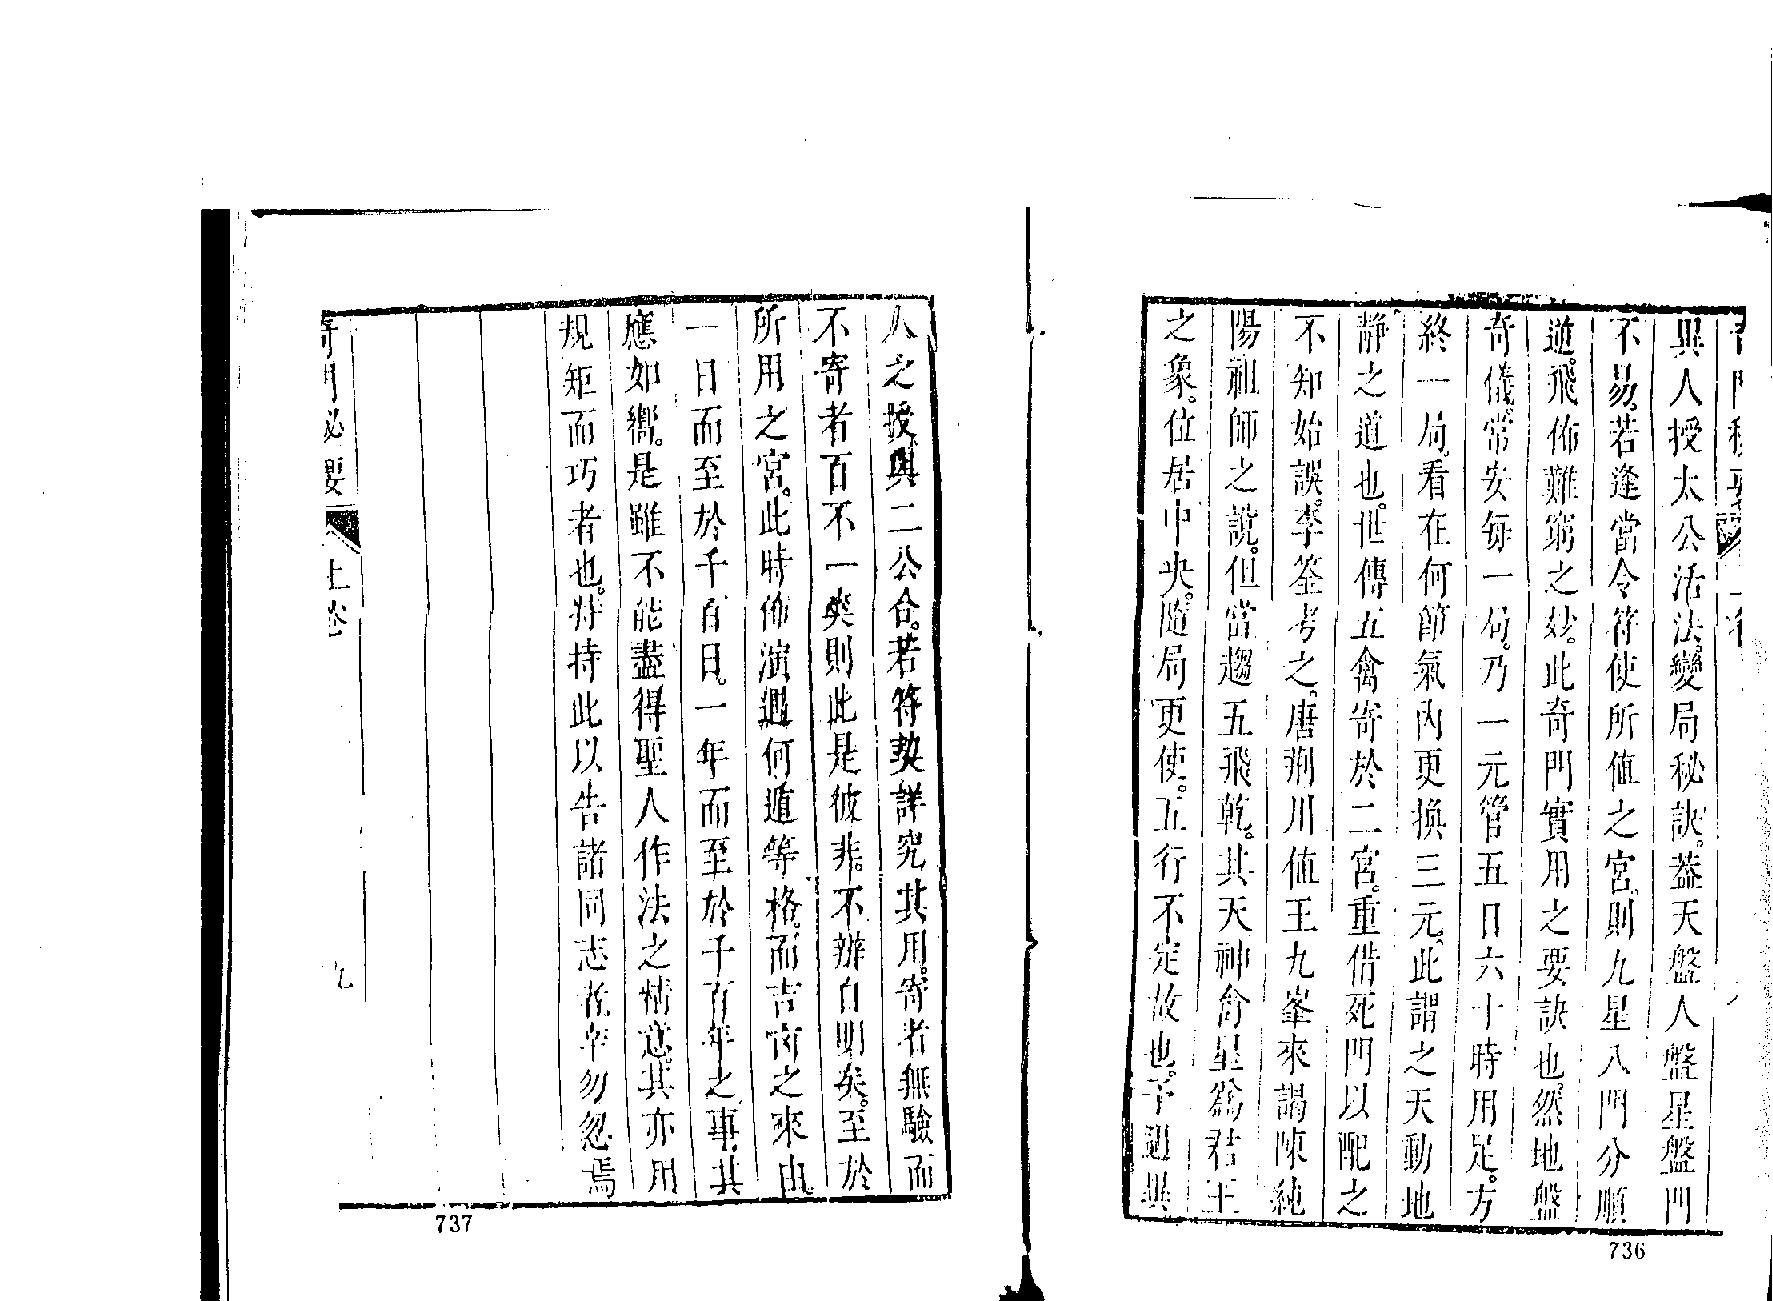 異人授太公活法。變局秘訣。蓋天盤人盤星盤門
不易。若逢當令符使所值之宮。則九星八門分順
逆。飛佈難窮之妙。此奇門實用之要訣也。然地盤
奇儀。常安每一局。乃一元管五日六十時用足。方
終一局。看在何節氣內更換三元。此謂之天動地
靜之道也。世傳五禽寄於二宮。重借死門以配之
不知始誤。李筌考之。唐荊川值王九峯來謁陳純
陽祖師之說。但當趨五飛乾。其天神禽星爲君王
之象。位居中央。隨局更使。五行不定故也。予遇異
736
人之授。與二公合。若符契詳究其用。寄者無驗而
不寄者百不一爽則此是彼非。不辦自明矣。至於
所用之宮。此時佈演遇何遁等格。而吉凶之來由。
一日而至於千百日。一年而至於千百年之事。其
應如嚮。是雖不能盡得聖人作法之情意。其亦用
規矩而巧者也。特持此以告諸同志者。幸勿忽焉
奇門秘要 上卷 九
737